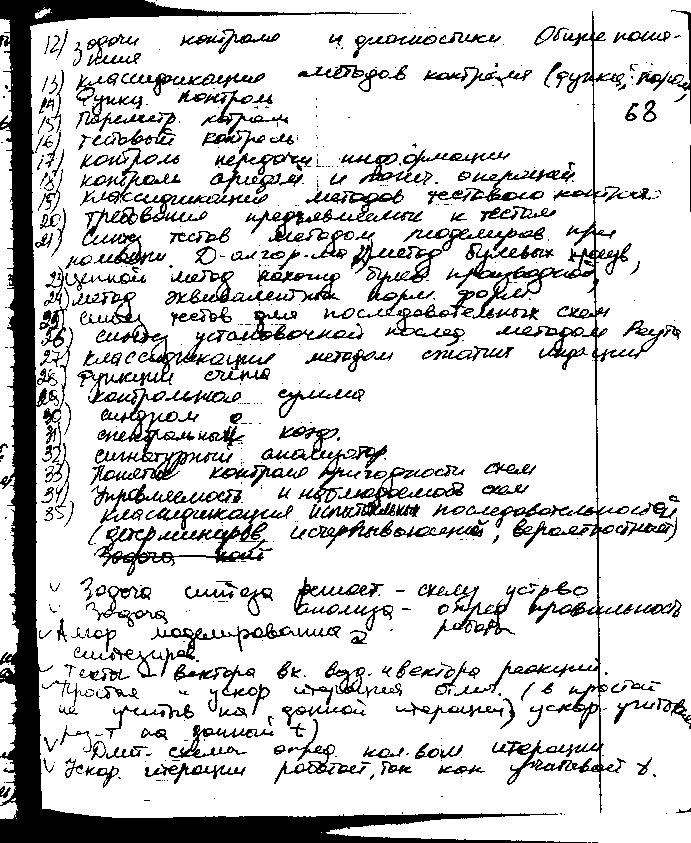 12) Задачи контроля и диагностики Общие поня-
тия
13) классификация методов контроля (функц, парам,
68
14) Функц. контроль
15) Параметр. контроль
16) тестовый контроль
17) контроль передачи информации
18) контроль арифм и логич. операций
19) классификация методов тестового контроля
20) требования предъявляемые к тестам
21) Синтез тестов методом моделиров. при
помощи D-алгор-ма метод булевых произв,
23) цепной метод нахожд булев. производной,
24) метод эквивалентных норм. форм
25) синтез тестов для последовательных схем
26) синтез установочной послед методом Раута
27) классификация методом сжатия информации
28) Функции счёта
29) контрольная сумма
30) синдром
31) спектральный коэф.
32) сигнатурный анализатор.
33) Понятие контроле пригодности схем
34) Управляемость и наблюдаемость схем
35) классификация испытательных последовательностей
(детерминиров, исчерпывающей, вероятностной)
Задача
v Задача синтеза решает - схему устр-во
v Задача анализа - опред правильность
v Алгор моделирования работы
синтезиров.
v Тесты - вектора вх. возд. и вектора реакции.
v Простая и ускор итерация отлич. (в простой
не учитыв на данной итерации, ускор. учитыва
рез-т на данной t)
v Длит. схемы опред кол-вом итерации
v Ускор. итерации работает, так как учитывает